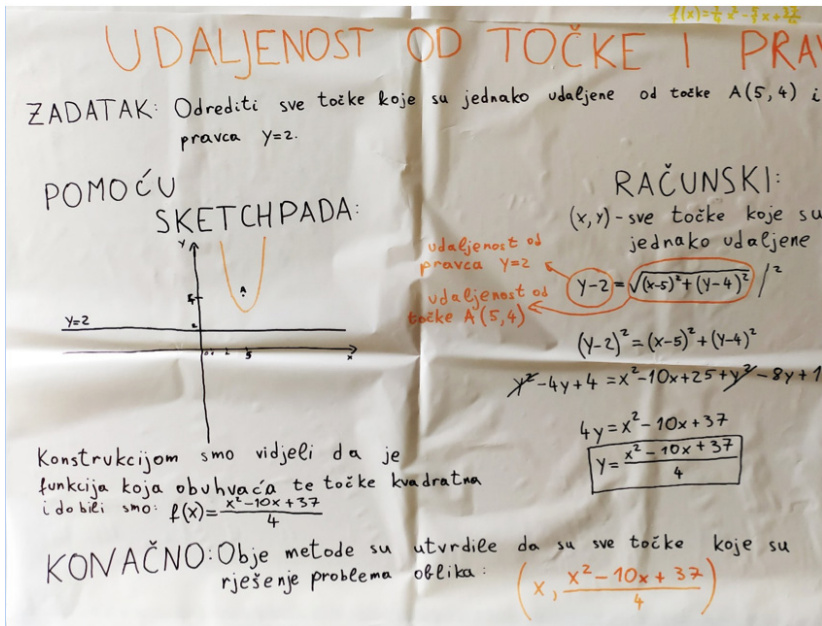 f(x)=¼x²-5/2x+37/4
UDALJENOST OD TOČKE I PRAV
ZADATAK: Odrediti sve točke koje su jednako udaljene od točke A(5,4) i
pravca y=2.
POMOĆU
SKETCHPADA:
y
A
y=2
2
5
x
Konstrukcijom smo vidjeli da je
funkcija koja obuhvaća te točke kvadratna
i dobili smo: f(x)=(x²-10x+37)/4
RAČUNSKI:
(x,y)-sve točke koje su
jednako udaljene
udaljenost od
pravca y=2
udaljenost od
točke A(5,4)
y-2=√((x-5)²+(y-4)²) /²
(y-2)²=(x-5)²+(y-4)²
y²-4y+4=x²-10x+25+y²-8y+1
4y=x²-10x+37
y=(x²-10x+37)/4
KONAČNO: Obje metode su utvrdile da su sve točke koje su
rješenje problema oblika: (x, (x²-10x+37)/4)